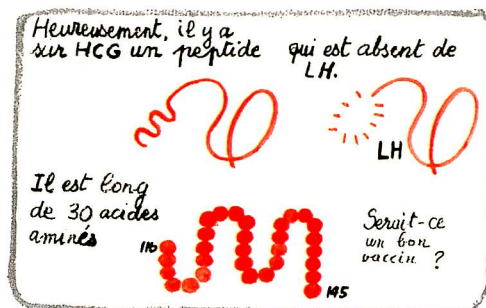 Heureusement, il y a
sur HCG un peptide qui est absent de
LH.
LH
Il est long
de 30 acides
aminés
116
145
Serait-ce
un bon
vaccin ?